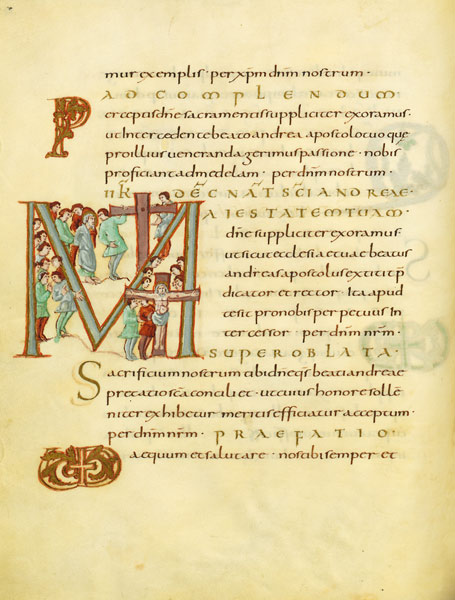 mur exemplis · per xp̄m dnm̄ nostrum ·
AD COMPLENDUM
Perceptis dn̄e sacramentis suppliciter exoramus ·
ut intercedente beato andrea apostolo tuo quę
pro illius veneranda gerimus passione · nobis
proficiant ad medelam · per dnm̄ nostrum ·
II K̄L DEC̄ NAT̄ SCĪ ANDREAE
MAIESTATEM TUAM ·
dn̄e suppliciter exoramus
ut sicut ecclesiae tuae beatus
andreas apostolus extitit p̄
dicator et rector Ita apud
te sit pro nobis perpetuus In
tercessor · per dnm̄ nr̄m ·
SUPER OBLATA ·
Sacrificium nostrum tibi dn̄e qs̄ beati andreae
precatio sc̄a conciliet · ut cuius honore solle
niter exhibetur meritis efficiatur acceptum ·
per dnm̄ nr̄m · PRAEFATIO ·
aequum et salutare · nos tibi semper et